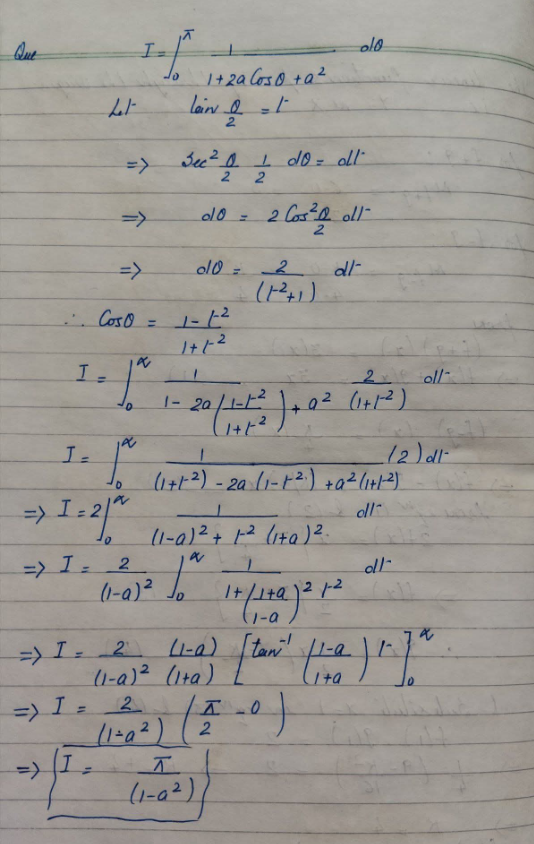 Que I = ∫₀^π 1/(1+2a Cosθ + a²) dθ
Let tan θ/2 = t
=> Sec² θ/2 1/2 dθ = dt
=> dθ = 2 Cos² θ/2 dt
=> dθ = 2/(t²+1) dt
∴ Cosθ = (1-t²)/(1+t²)
I = ∫₀^∝ 1/(1 - 2a((1-t²)/(1+t²)) + a²) 2/(1+t²) dt
I = ∫₀^∝ 1/((1+t²) - 2a (1-t²) + a²(1+t²)) (2) dt
=> I = 2∫₀^∝ 1/((1-a)² + t² (1+a)²) dt
=> I = 2/(1-a)² ∫₀^∝ 1/(1+((1+a)/(1-a))² t²) dt
=> I = 2/(1-a)² (1-a)/(1+a) [tan⁻¹ ((1-a)/(1+a)) t]₀^∝
=> I = 2/(1-a²) (π/2 - 0)
=> I = π/(1-a²)